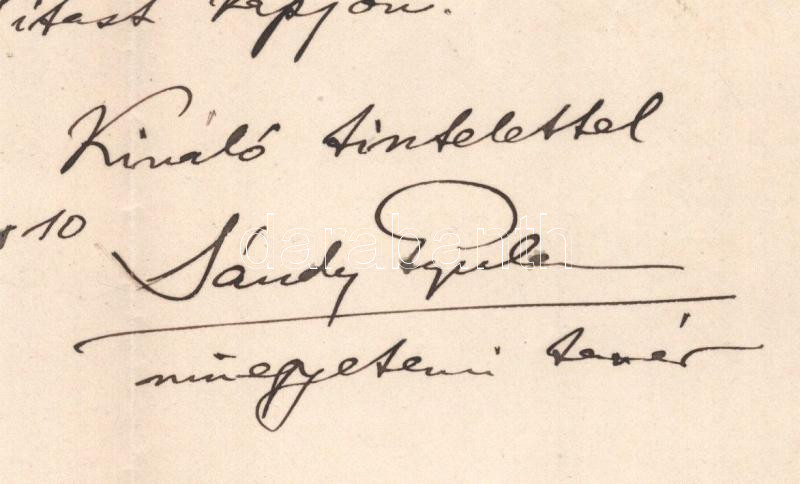 kapjon.
Kiváló tisztelettel
10
Sándy Gyula
műegyetemi tanár
darabanth